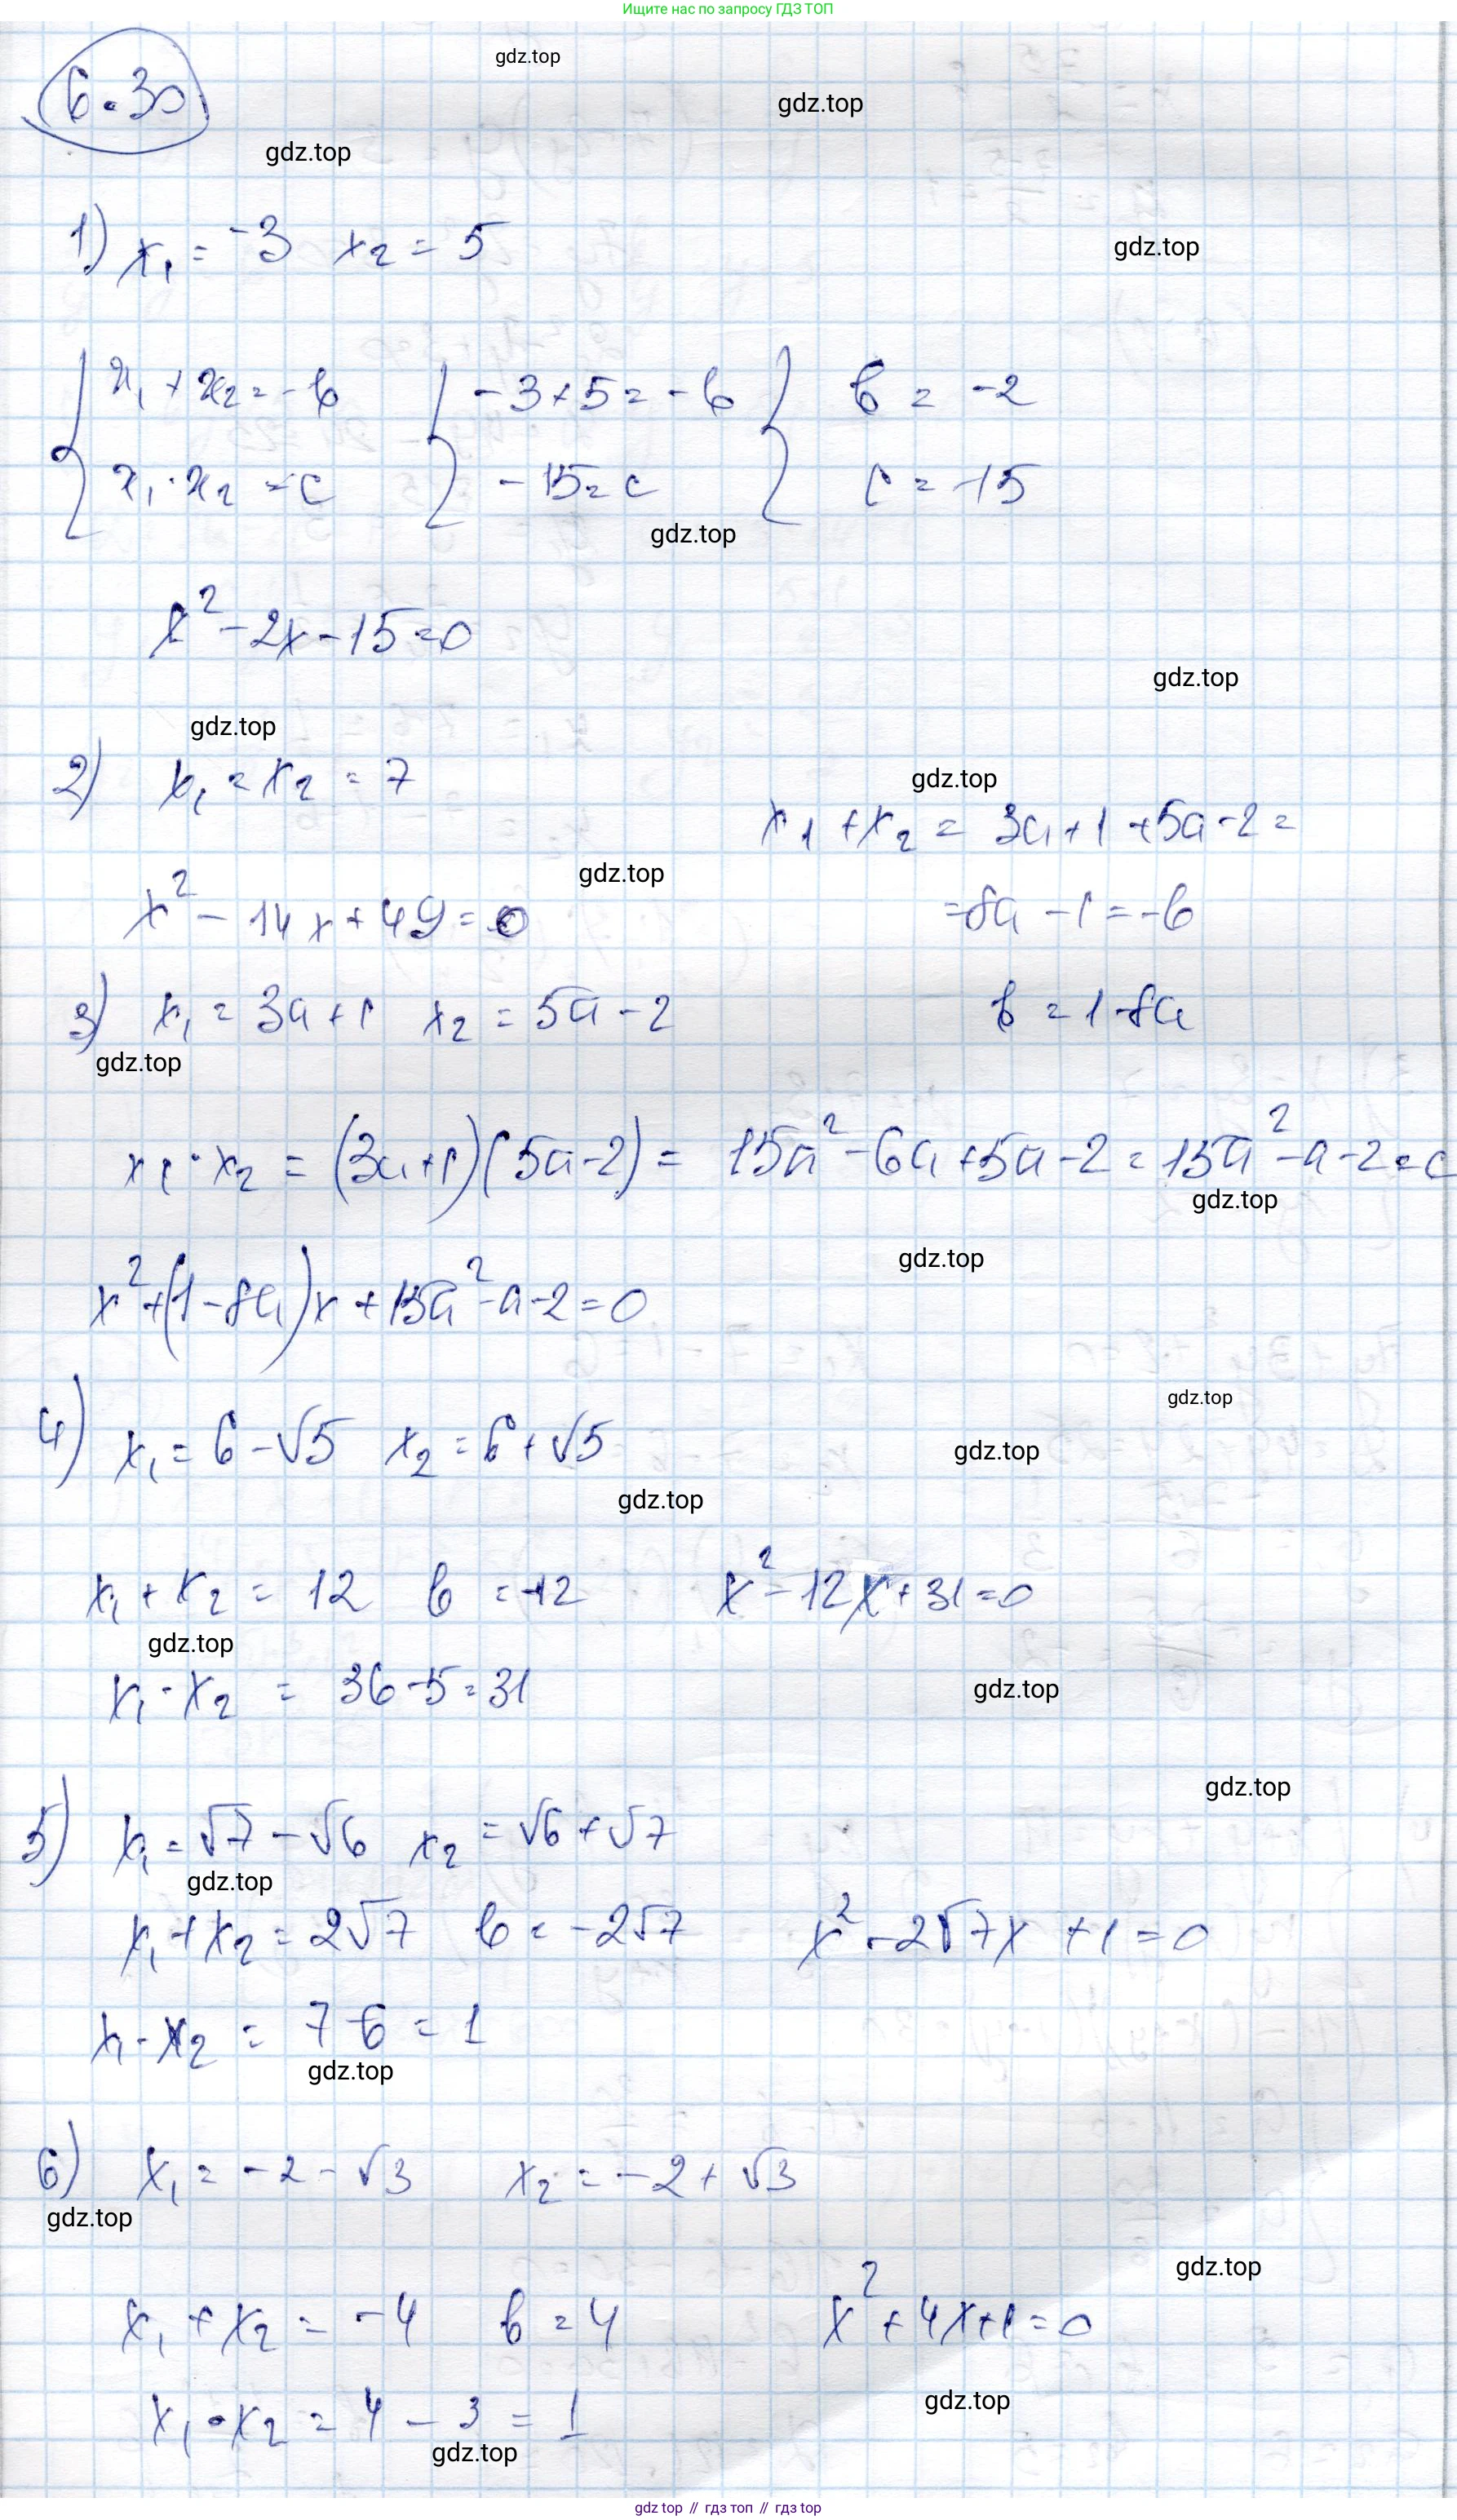 Ищите нас по запросу ГДЗ ТОП
gdz.top
6.30
gdz.top
gdz.top
1) x₁ = -3 x₂ = 5
gdz.top
{ x₁ + x₂ = -b { -3+5 = -b { b = -2
x₁ · x₂ = c -15 = c c = -15
gdz.top
x² - 2x - 15 = 0
gdz.top
gdz.top
2) x₁ = x₂ = 7
gdz.top
x₁ + x₂ = 3a+1+5a-2 =
gdz.top
x² - 14x + 49 = 0
= 8a - 1 = -b
3) x₁ = 3a+1 x₂ = 5a-2
b = 1-8a
gdz.top
x₁ · x₂ = (3a+1)(5a-2) = 15a²-6a+5a-2 = 15a²-a-2 = c
gdz.top
gdz.top
x²+(1-8a)x+15a²-a-2=0
gdz.top
4) x₁ = 6-√5 x₂ = 6+√5
gdz.top
gdz.top
x₁ + x₂ = 12 b = -12 x²-12x+31=0
gdz.top
x₁ · x₂ = 36-5=31
gdz.top
gdz.top
5) x₁ = √7-√6 x₂ = √6+√7
gdz.top
x₁+x₂ = 2√7 b = -2√7 x²-2√7x+1=0
x₁ · x₂ = 7-6 = 1
gdz.top
6) x₁ = -2-√3 x₂ = -2+√3
gdz.top
gdz.top
x₁ + x₂ = -4 b = 4 x²+4x+1=0
gdz.top
x₁ · x₂ = 4-3 = 1
gdz.top
gdz top // гдз топ // gdz top